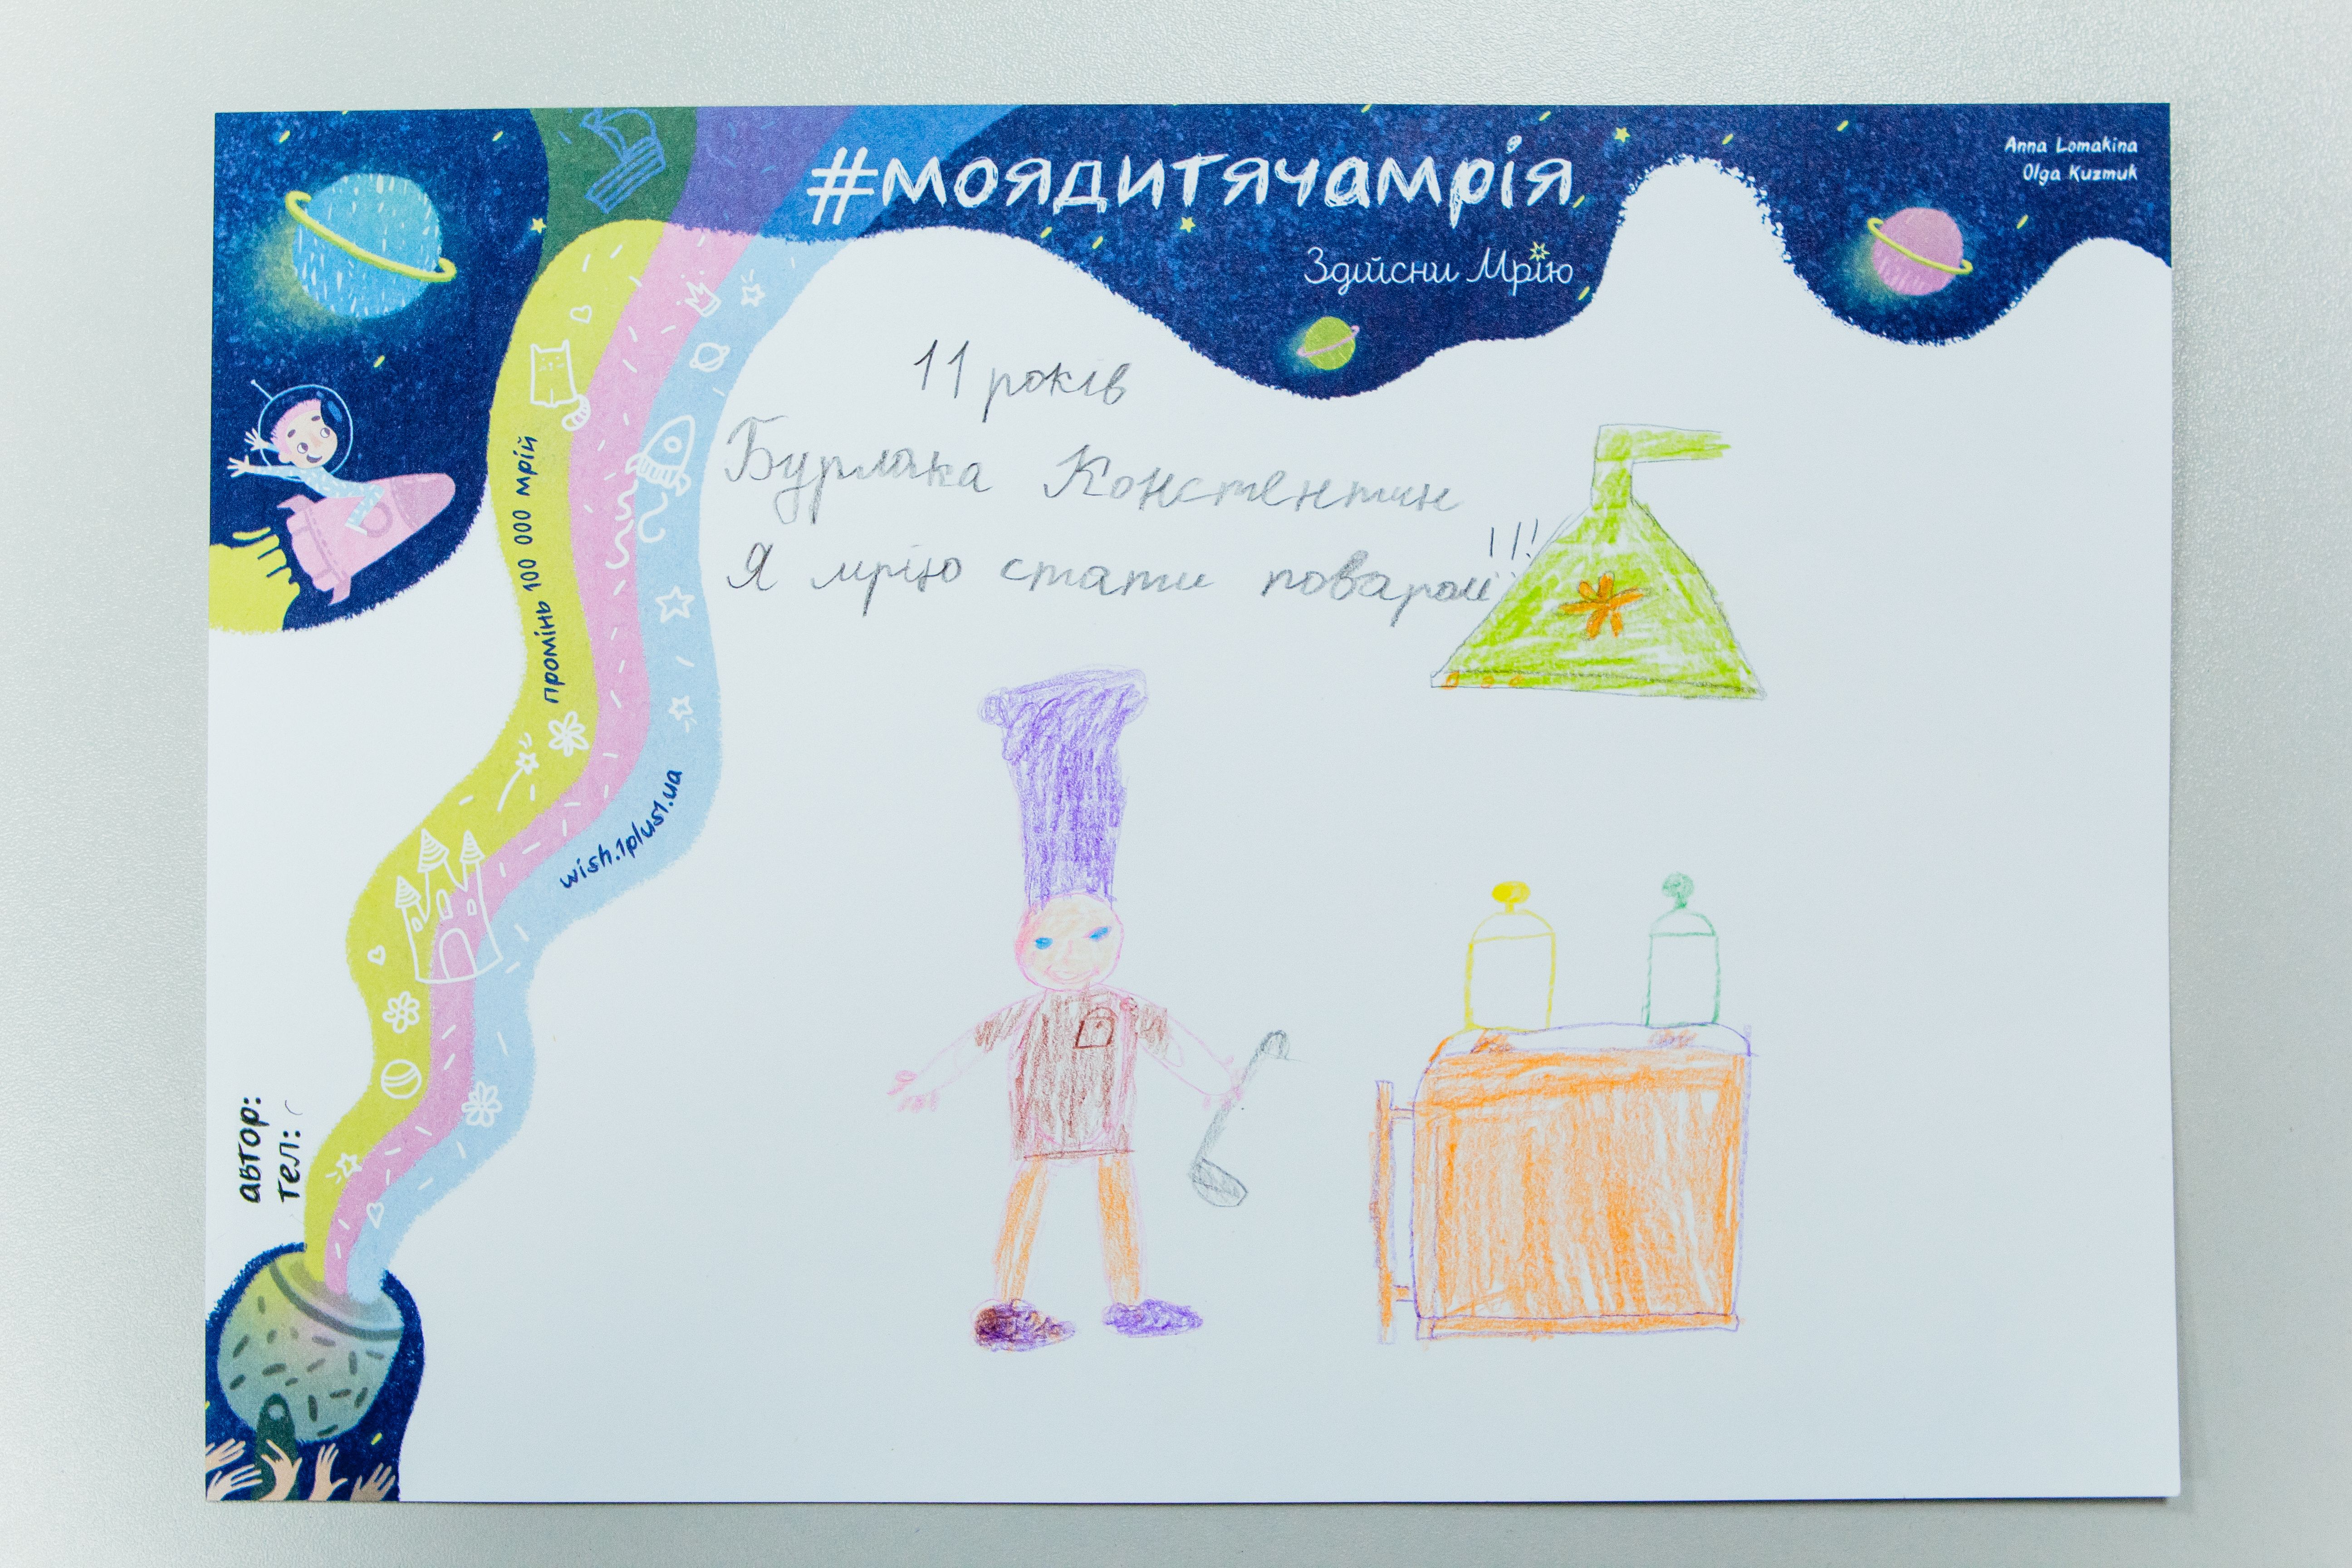 #моядитячамрія
Здійсни Мрію
Anna Lomakina
Olga Kuzmuk
11 років
Бурлака Констентин
Я мрію стати поваром!!!
промінь 100 000 мрій
wish.1plus1.ua
автор:
тел: